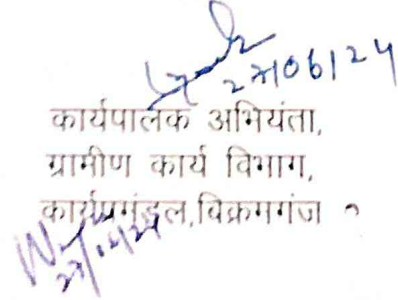 27/06/24
कार्यपालक अभियंता,
ग्रामीण कार्य विभाग,
कार्यप्रमंडल,विक्रमगंज